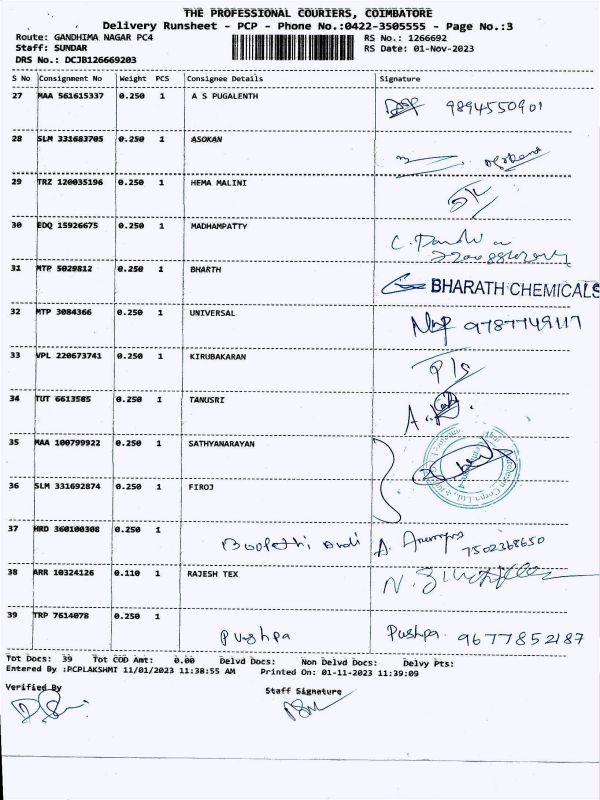 THE PROFESSIONAL COURIERS, COIMBATORE
Delivery Runsheet - PCP - Phone No.:0422-3505555 - Page No.:3
Route: GANDHIMA NAGAR PC4 RS No.: 1266692
Staff: SUNDAR RS Date: 01-Nov-2023
DRS No.: DCJB126669203
S No Consignment No Weight PCS Consignee Details Signature
27 MAA 561615337 0.250 1 A S PUGALENTH 9894550901
28 SLM 331683705 0.250 1 ASOKAN
29 TRZ 120035196 0.250 1 HEMA MALINI
30 EDQ 15926675 0.250 1 MADHAMPATTY
31 MTP 5029812 0.250 1 BHARTH BHARATH CHEMICALS
32 MTP 3084366 0.250 1 UNIVERSAL 9787749117
33 VPL 220673741 0.250 1 KIRUBAKARAN P/S
34 TUT 6613585 0.250 1 TANUSRI
35 MAA 100799922 0.250 1 SATHYANARAYAN
36 SLM 331692874 0.250 1 FIROJ
37 HRD 360100308 0.250 1 7502368650
38 ARR 10324126 0.110 1 RAJESH TEX
39 TRP 7614078 0.250 1 Pushpa Pushpa 9677852187
Tot Docs: 39 Tot COD Amt: 0.00 Delvd Docs: Non Delvd Docs: Delvy Pts:
Entered By :PCPLAKSHMI 11/01/2023 11:38:55 AM Printed On: 01-11-2023 11:39:09
Verified By Staff Signature